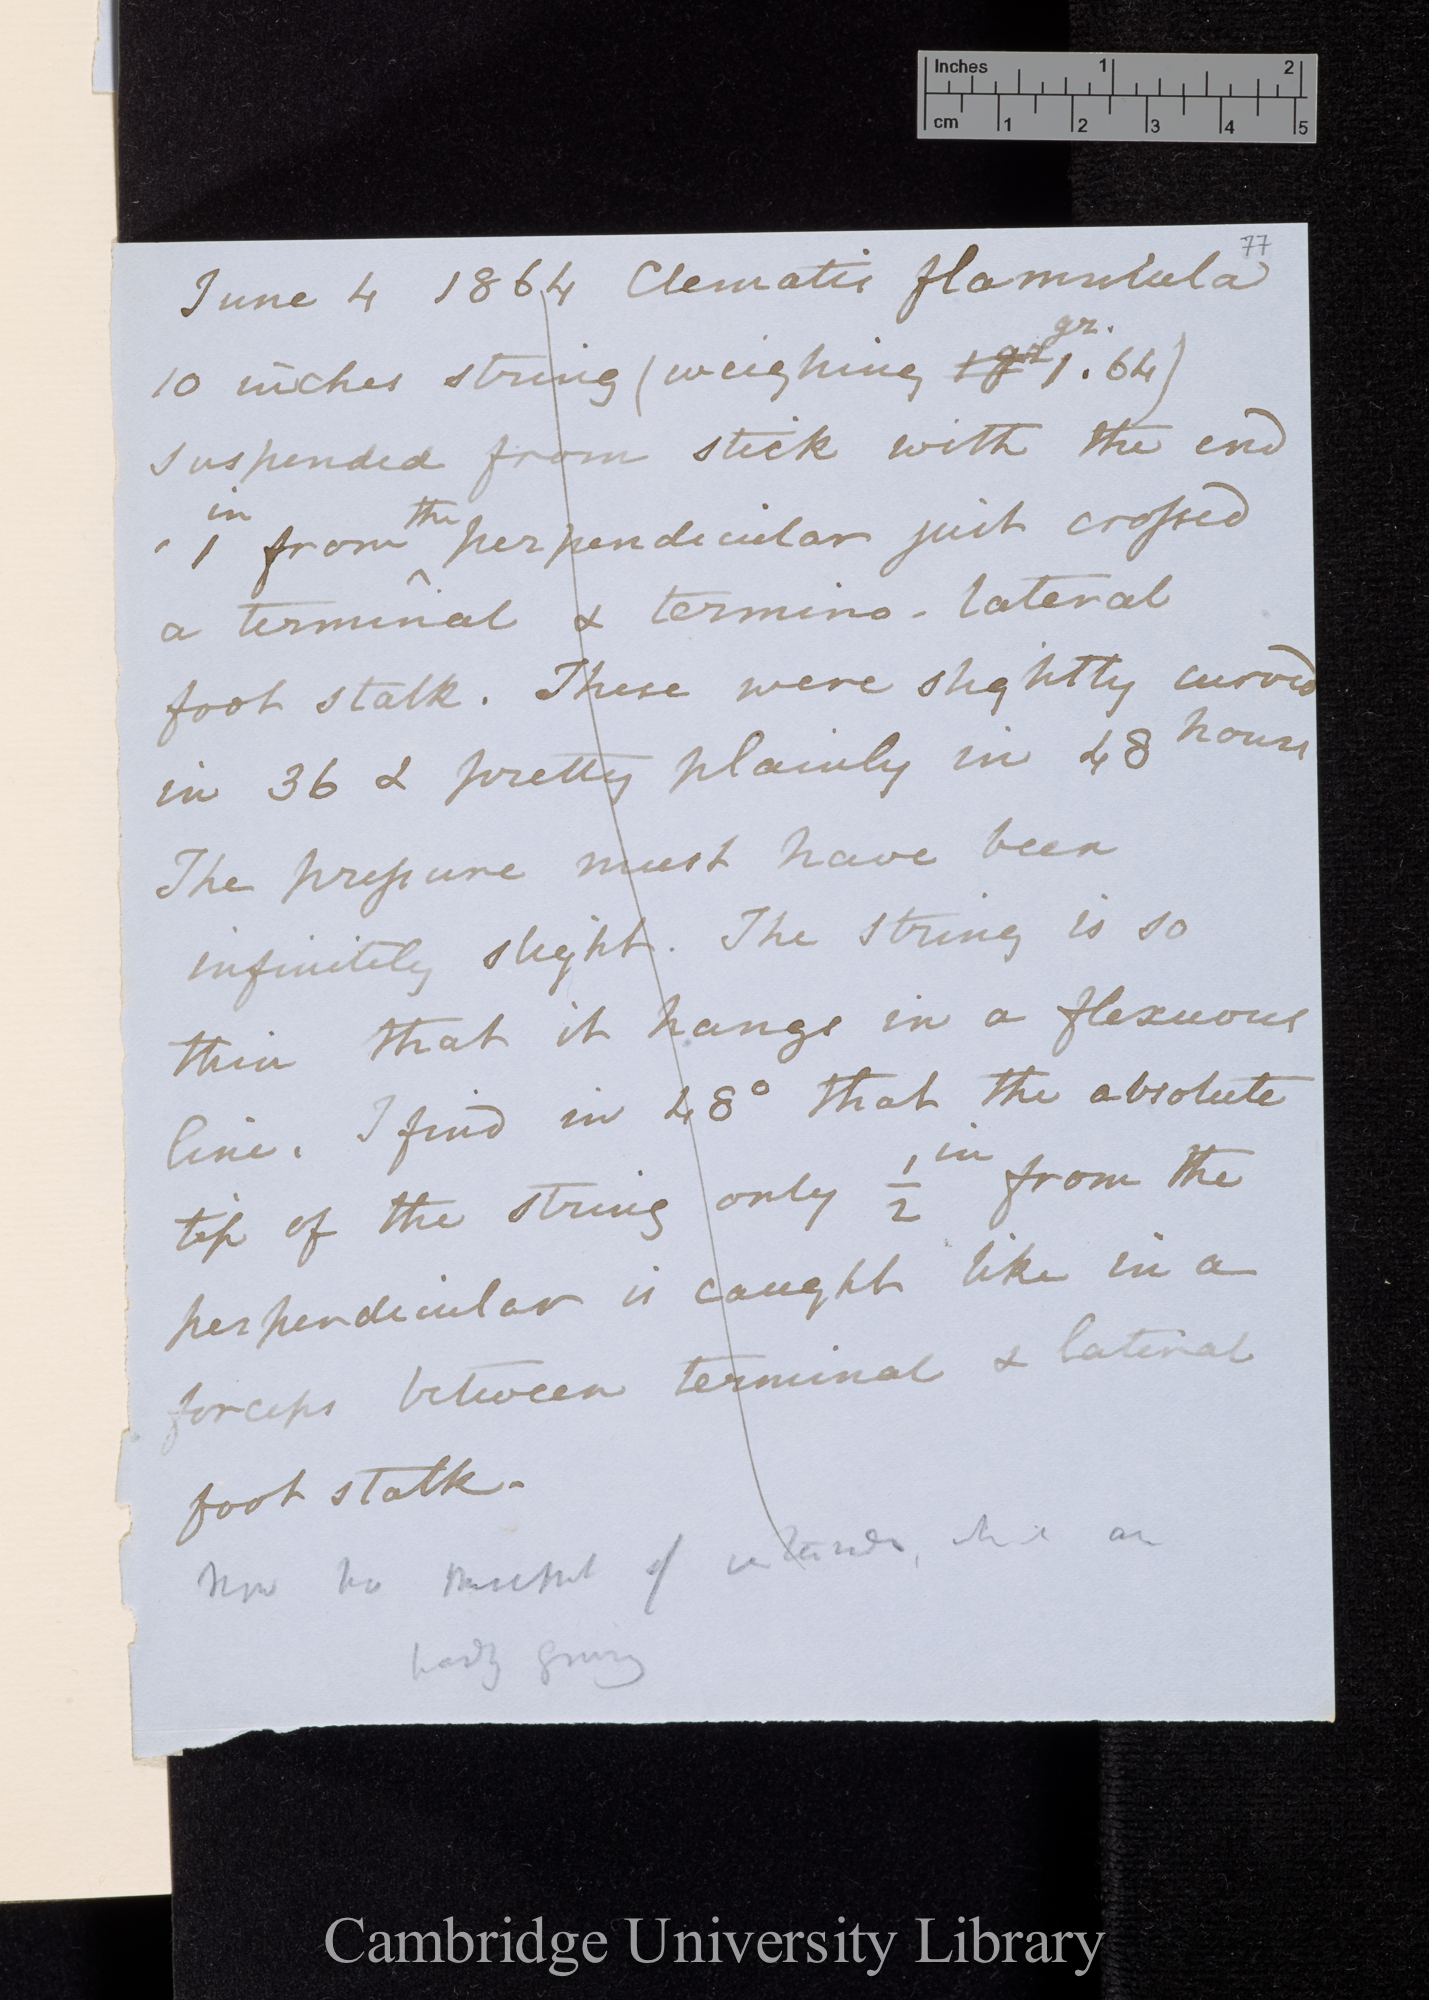 Inches 1 2
cm 1 2 3 4 5
77
June 4 1864 Clematis flammula
gr.
10 inches string (weighing 1 gr 1.64)
suspended from stick with the end
1 in from the perpendicular just crossed
a terminal & termino-lateral
foot stalk. These were slightly curved
in 36 & pretty plainly in 48 hours
The pressure must have been
infinitely slight. The string is so
thin that it hangs in a flexuous
line. I find in 48° that the absolute
tip of the string only 1/2 in from the
perpendicular is caught like in a
forceps between terminal & lateral
foot stalk.
of
Cambridge University Library